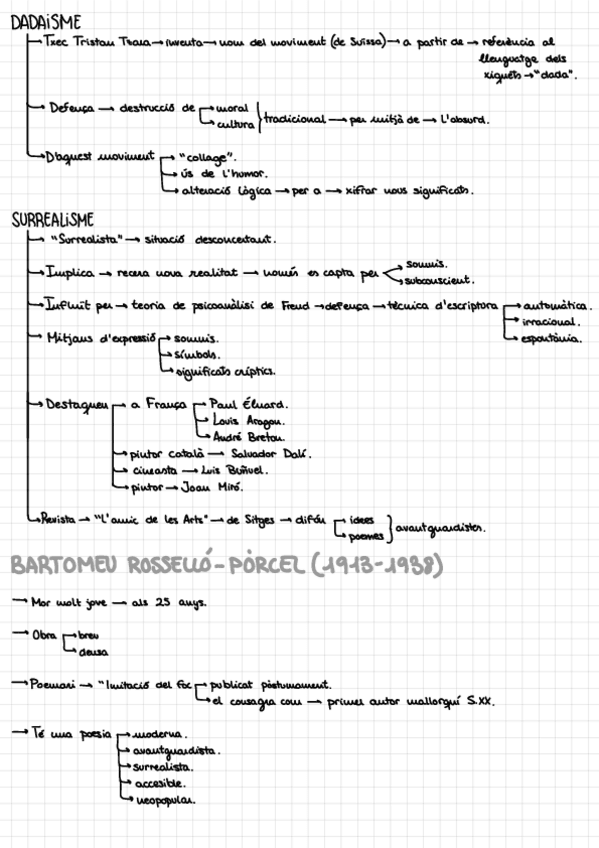 DADAISME
→ Txec Tristan Tzara → inventa → nom del moviment (de Suïssa) → a partir de → referència al
llenguatge dels
xiquets → "dada".
→ Defensa → destrucció de → moral
→ cultura } tradicional → per mitjà de → l'absurd.
→ D'aquest moviment → "collage".
→ ús de l'humor.
→ alteració lògica → per a → xifrar nous significats.
SURREALISME
→ "Surrealista" → situació desconcertant.
→ Implica → recerca nova realitat → només es capta per → somnis.
→ subconscient.
→ Influït per → teoria de psicoanàlisi de Freud → defensa → tècnica d'escriptora → automàtica.
→ irracional.
→ espontània.
→ Mitjans d'expressió → somnis.
→ símbols.
→ significats críptics.
→ Destaquen → a França → Paul Éluard.
→ Louis Aragon.
→ André Breton.
→ pintor català → Salvador Dalí.
→ cineasta → Luis Buñuel.
→ pintor → Joan Miró.
→ Revista → "L'amic de les Arts" → de Sitges → difón → idees
→ poemes } avantguardistes.
BARTOMEU ROSSELLÓ-PÒRCEL (1913-1938)
→ Mor molt jove → als 25 anys.
→ Obra → breu
→ densa
→ Poemari → "Imitació del foc → publicat pòstumament.
→ el consagra com → primer autor mallorquí S.XX.
→ Té una poesia → moderna.
→ avantguardista.
→ surrealista.
→ accesible.
→ neopopular.